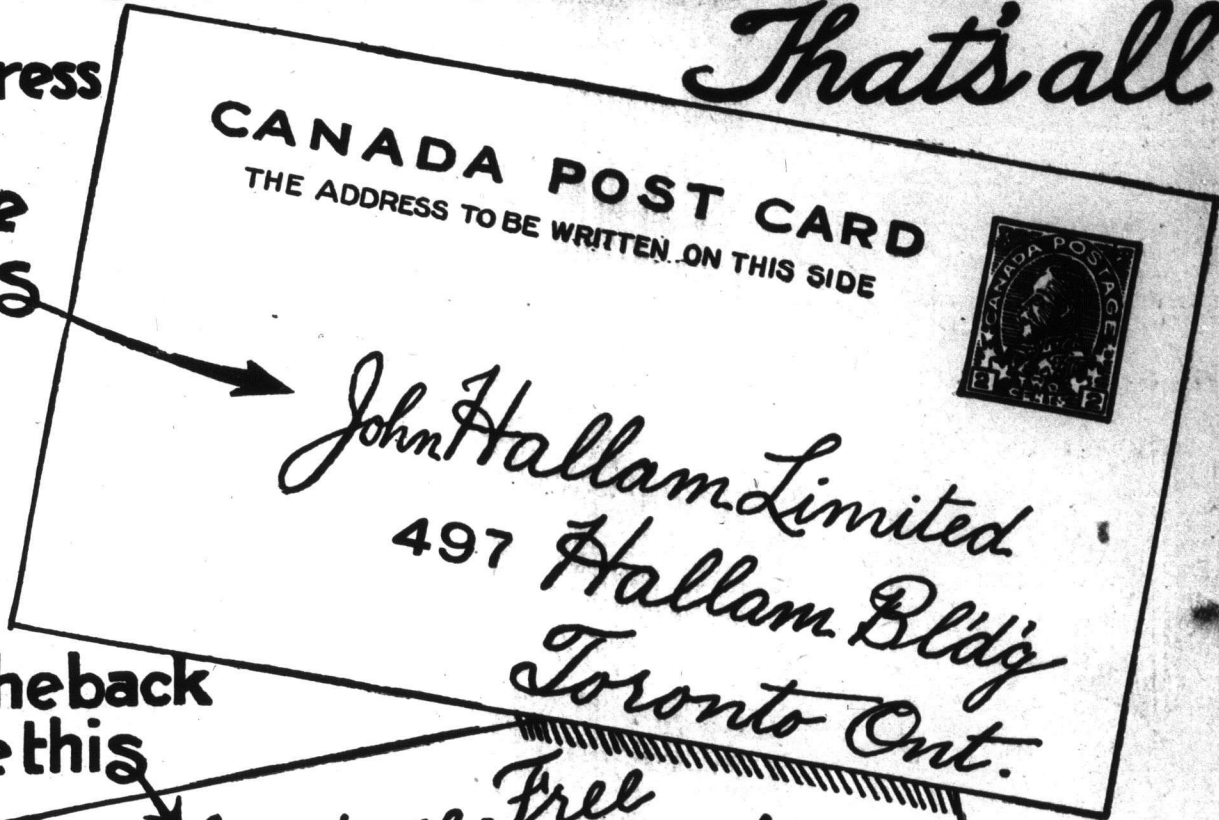 That's all
ress
CANADA POST CARD
THE ADDRESS TO BE WRITTEN ON THIS SIDE
CANADA POSTAGE
2 TWO CENTS 2
e
s
John Hallam Limited
497 Hallam Bl'd'g
Toronto Ont.
he back
e this
Free